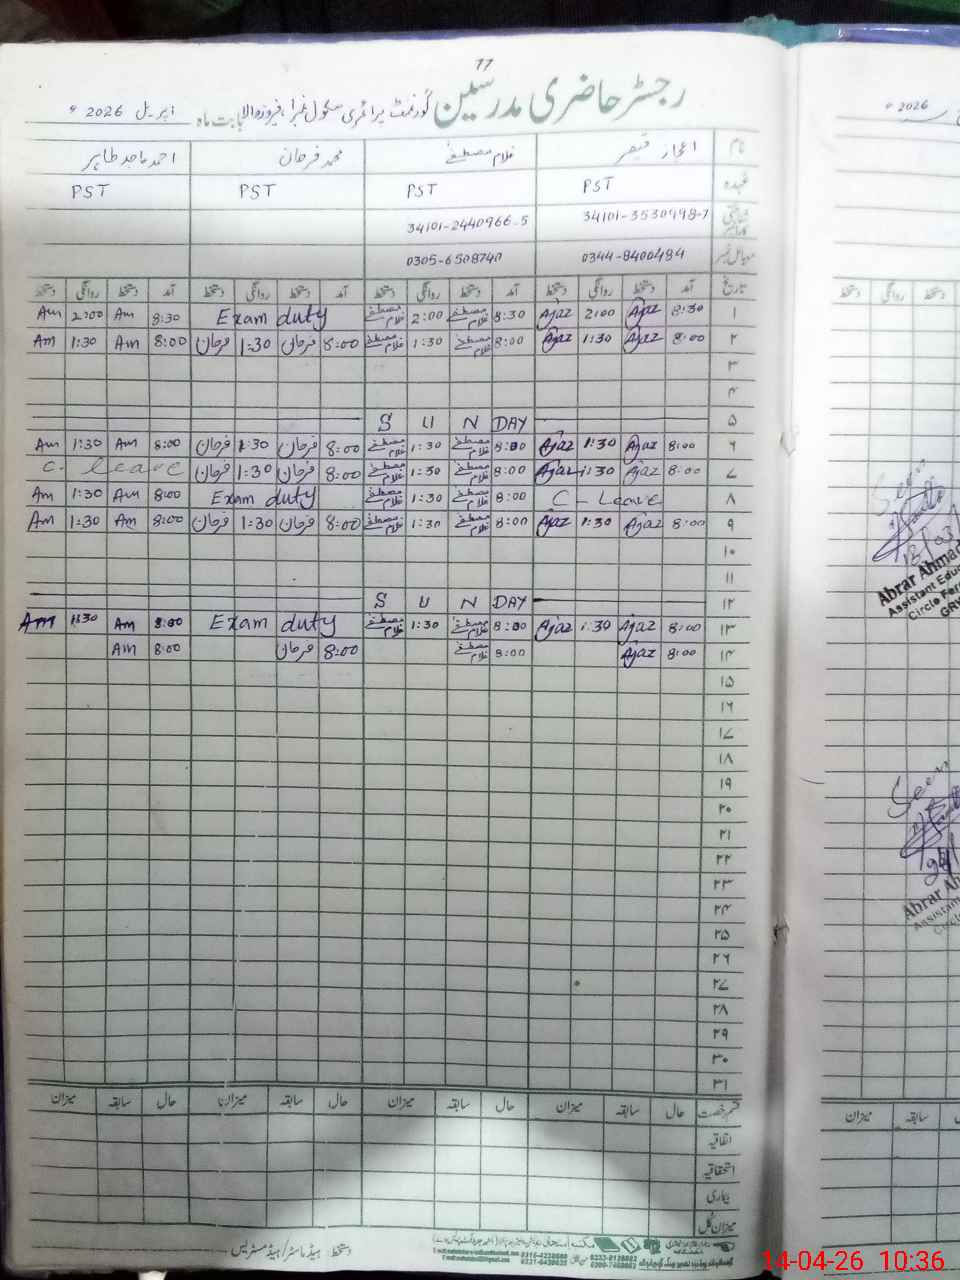 77
رجسٹر حاضری مدرسین گورنمنٹ پرائمری سکول نمبرا، فیروزوالا بابت ماہ اپریل 2026ء
نام اعجاز قیصر غلام مصطفےٰ محمد فرحان احمد ماجد طاہر
عہدہ PST PST PST PST
شناختی کارڈ نمبر 34101-3530998-7 34101-2440966-5
موبائل نمبر 0344-8400484 0305-6508740
تاریخ آمد دستخط روانگی دستخط آمد دستخط روانگی دستخط آمد دستخط روانگی دستخط آمد دستخط روانگی دستخط
۱ 8:30 Ajaz 2:00 Ajaz 8:30 غلام مصطفےٰ 2:00 غلام مصطفےٰ Exam duty 8:30 Am 2:00 Am
۲ 8:00 Ajaz 1:30 Ajaz 8:00 غلام مصطفےٰ 1:30 غلام مصطفےٰ 8:00 فرحان 1:30 فرحان 8:00 Am 1:30 Am
۳
۴
۵ S U N DAY
۶ 8:00 Ajaz 1:30 Ajaz 8:00 غلام مصطفےٰ 1:30 غلام مصطفےٰ 8:00 فرحان 1:30 فرحان 8:00 Am 1:30 Am
۷ 8:00 Ajaz 1:30 Ajaz 8:00 غلام مصطفےٰ 1:30 غلام مصطفےٰ 8:00 فرحان 1:30 فرحان C. leave
۸ C - Leave 8:00 غلام مصطفےٰ 1:30 غلام مصطفےٰ Exam duty 8:00 Am 1:30 Am
۹ 8:00 Ajaz 1:30 Ajaz 8:00 غلام مصطفےٰ 1:30 غلام مصطفےٰ 8:00 فرحان 1:30 فرحان 8:00 Am 1:30 Am
۱۰
۱۱
۱۲ S U N DAY
۱۳ 8:00 Ajaz 1:30 Ajaz 8:00 غلام مصطفےٰ 1:30 غلام مصطفےٰ Exam duty 8:00 Am 1:30 Am
۱۴ 8:00 Ajaz 8:00 غلام مصطفےٰ 8:00 فرحان 8:00 Am
۱۵
۱۶
۱۷
۱۸
۱۹
۲۰
۲۱
۲۲
۲۳
۲۴
۲۵
۲۶
۲۷
۲۸
۲۹
۳۰
۳۱
قسم رخصت حال سابقہ میزان حال سابقہ میزان حال سابقہ میزان حال سابقہ میزان
اتفاقیہ
استحقاقیہ
بیماری
میزان کل
دستخط ہیڈ ماسٹر/ہیڈ مسٹریس
2026ء
دستخط روانگی دستخط
Seen
13/03
Abrar Ahmad
Assistant Edu
Circle Fer
GRW
Seen
Abrar Ah
Assistan
Circl
میزان سابقہ
14-04-26 10:36